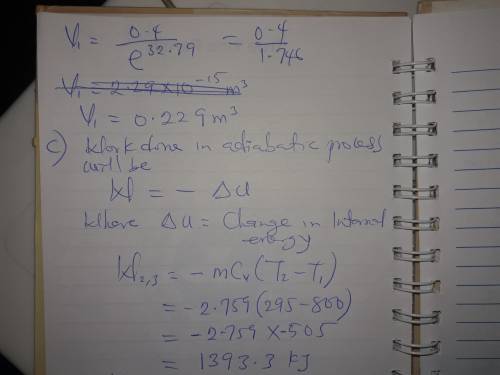 V₁ = 0.4 / e^32.79 = 0.4 / 1.746
V₁ = 2.29 × 10⁻¹⁵ m³
V₁ = 0.229 m³
c) Work done in adiabatic process
will be
W = − Δu
Where Δu = Change in Internal
energy
W₂,₃ = −mCv(T₂−T₁)
= −2.759(295−800)
= −2.759 × −505
= 1393.3 kJ